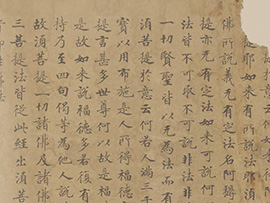 耶如來有所說法耶須
佛所說義无有定法名阿耨
提亦无有定法如來可說何
法皆不可取不可說非法非
一切賢聖皆以无為法而有
須菩提於意云何若人滿三千
寶以用布施是人所得福德
提言甚多世尊何以故是福
是故如來說福德多若復有
持乃至四句偈等為他人說
故須菩提一切諸佛及諸佛
三菩提法皆從此經出須菩